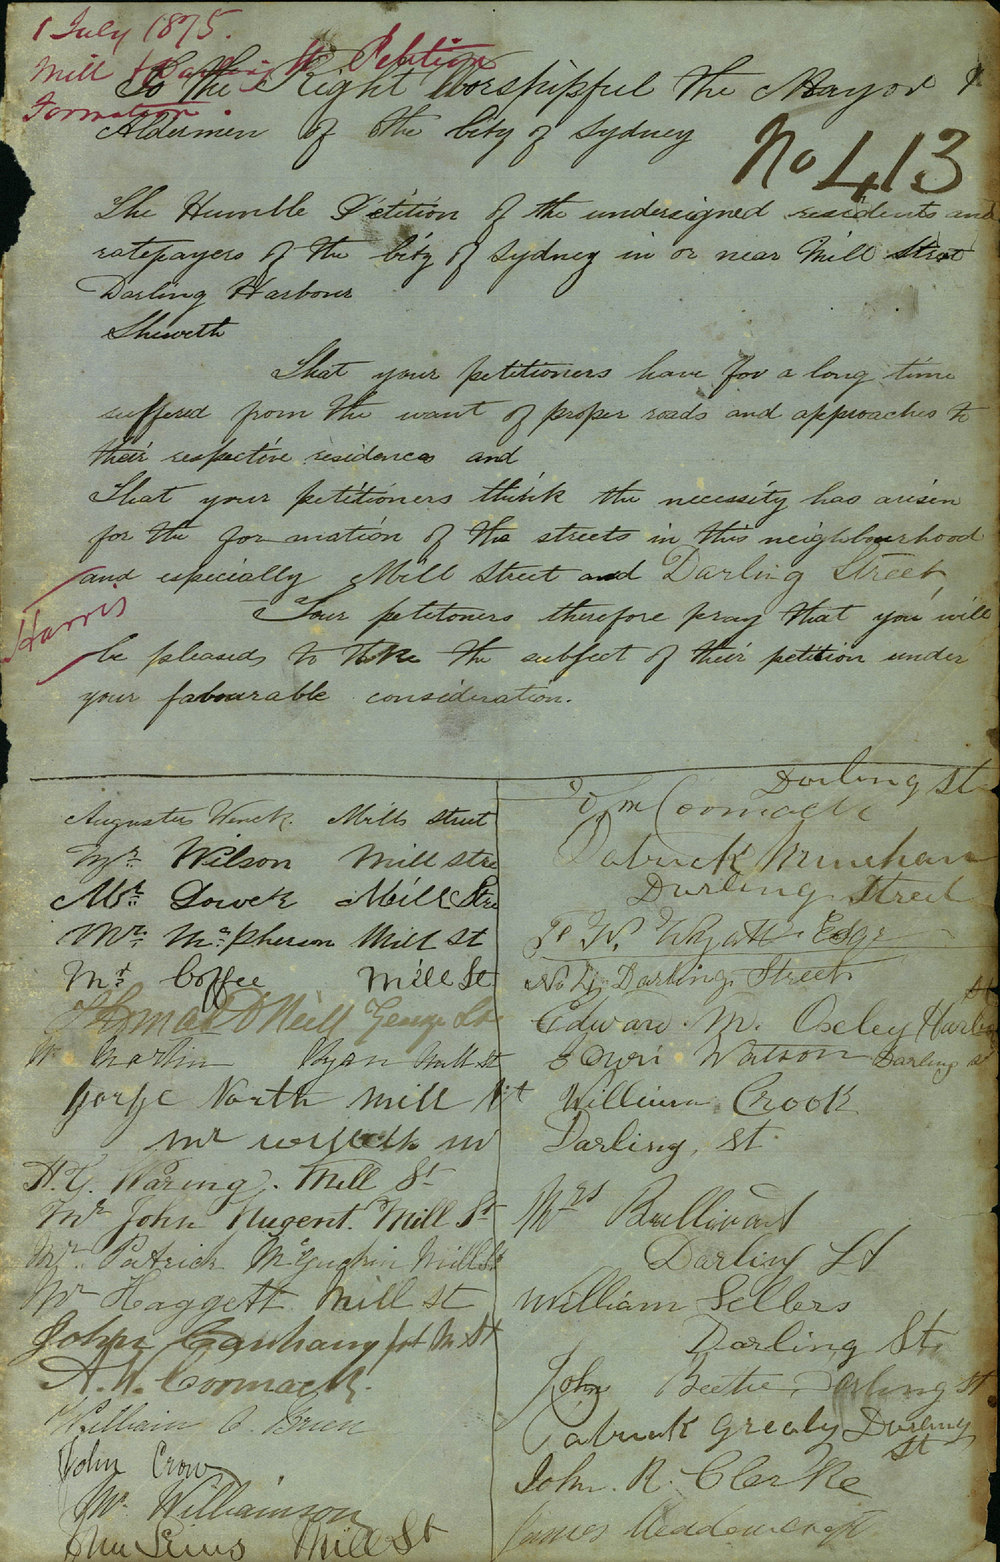 1 July 1875.
Mill & Darling St Petition
Formation.
To the Right Worshipful the Mayor &
Aldermen of the City of Sydney
No 413
The Humble Petition of the undersigned residents and
ratepayers of the City of Sydney in or near Mill Street
Darling Harbour
Sheweth
That your petitioners have for a long time
suffered from the want of proper roads and approaches to
their respective residences and
That your petitioners think the necessity has arisen
for the formation of the streets in this neighbourhood
and especially Mill Street and Darling Street
Harris
Your petitoners therefore pray that you will
be pleased to take the subject of their petition under
your fabourable consideration.
Augustus Mills street
Mr. Wilson Mill stre
Mr. Mill Stre
Mr. McPherson Mill St
Mr. Coffee Mill St
Thomas O'Neill George St
Martin Ryan Mill st
North Mill St
Mr
H. G. Waring. Mill St
Mr John Nugent. Mill St
Mr. Patrick McGuckin Mill St
Mr Haggett Mill st
John
A. W. Cormack.
William O. Green
John Crow
Mr. Williamson
Mill St
Darling St
Cormack
Patrick Minehan
Darling Street
Wyatt Esqr
No 4 Darling Street
Edward M. Oxley Harbour
St
Watson Darling st
William Crook
Darling, st
Mrs Bullivant
Darling St
William Sellers
Darling St.
John Bettie, Darling St
Patrick Grealy Darling
St
John R. Clarke
James Meadowcroft